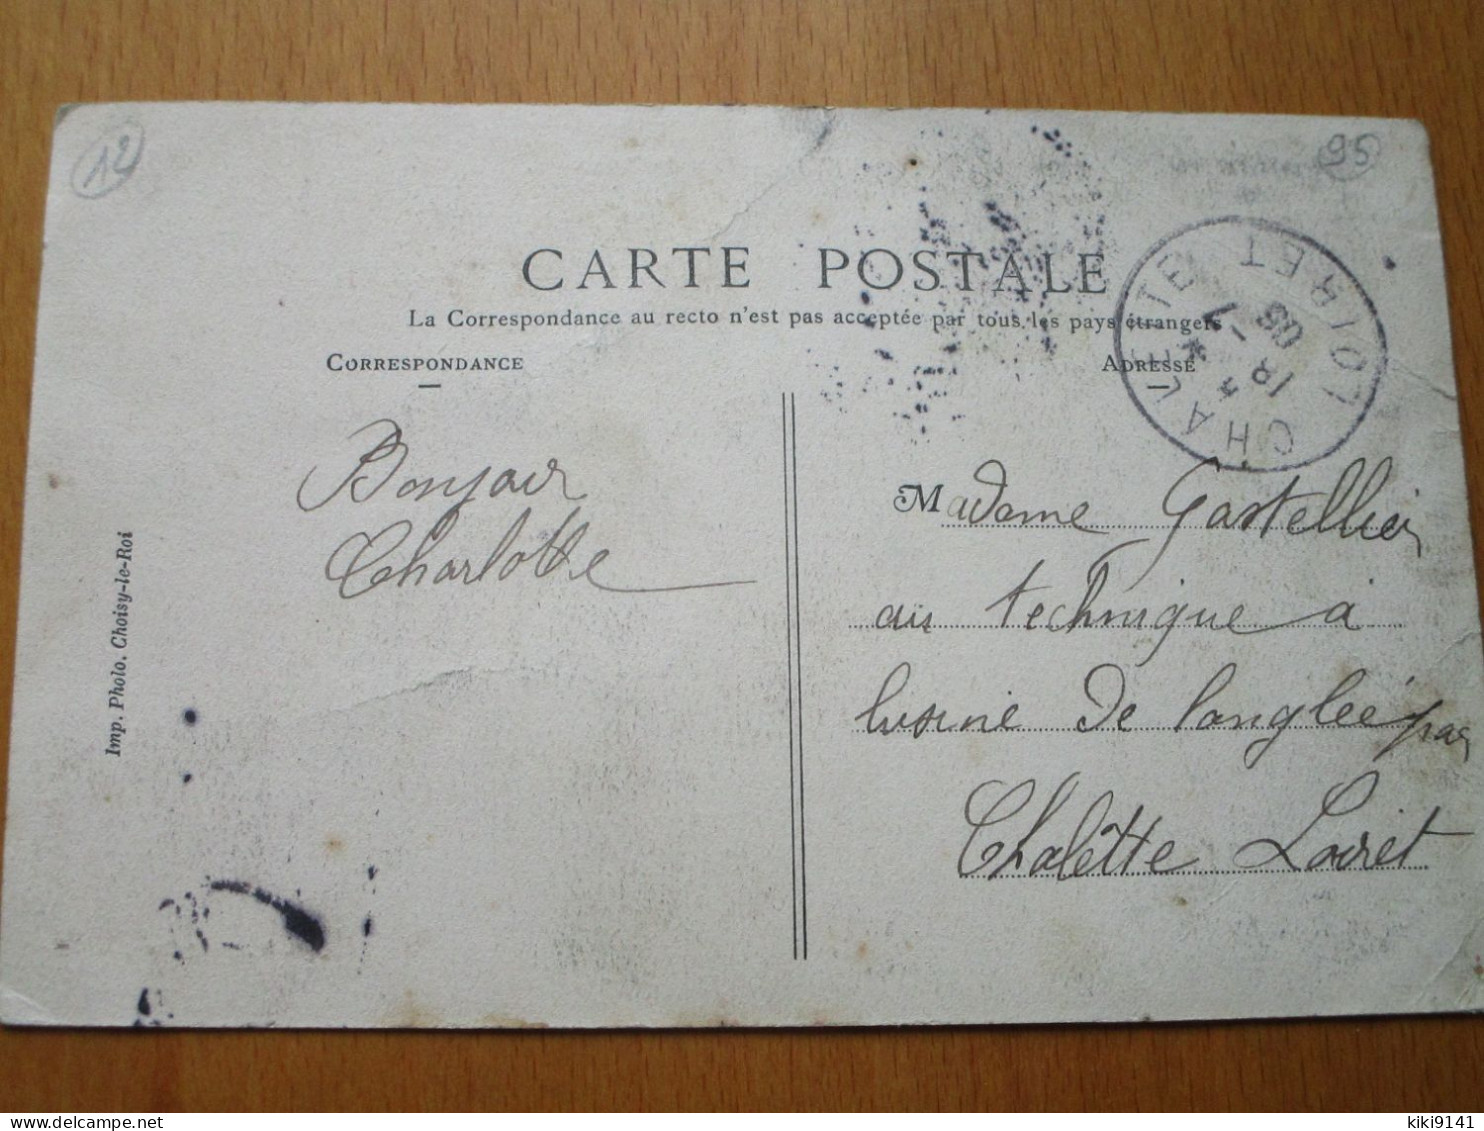 12
95
CARTE POSTALE
La Correspondance au recto n'est pas acceptée par tous les pays étrangers
CORRESPONDANCE
ADRESSE
CHALETTE
LOIRET
18 -7
05
Bonjour
Charlotte
Madame Gastellier
au technique à
lusine De Langlée par
Chalêtte Loiret
Imp. Photo. Choisy-le-Roi
kiki9141